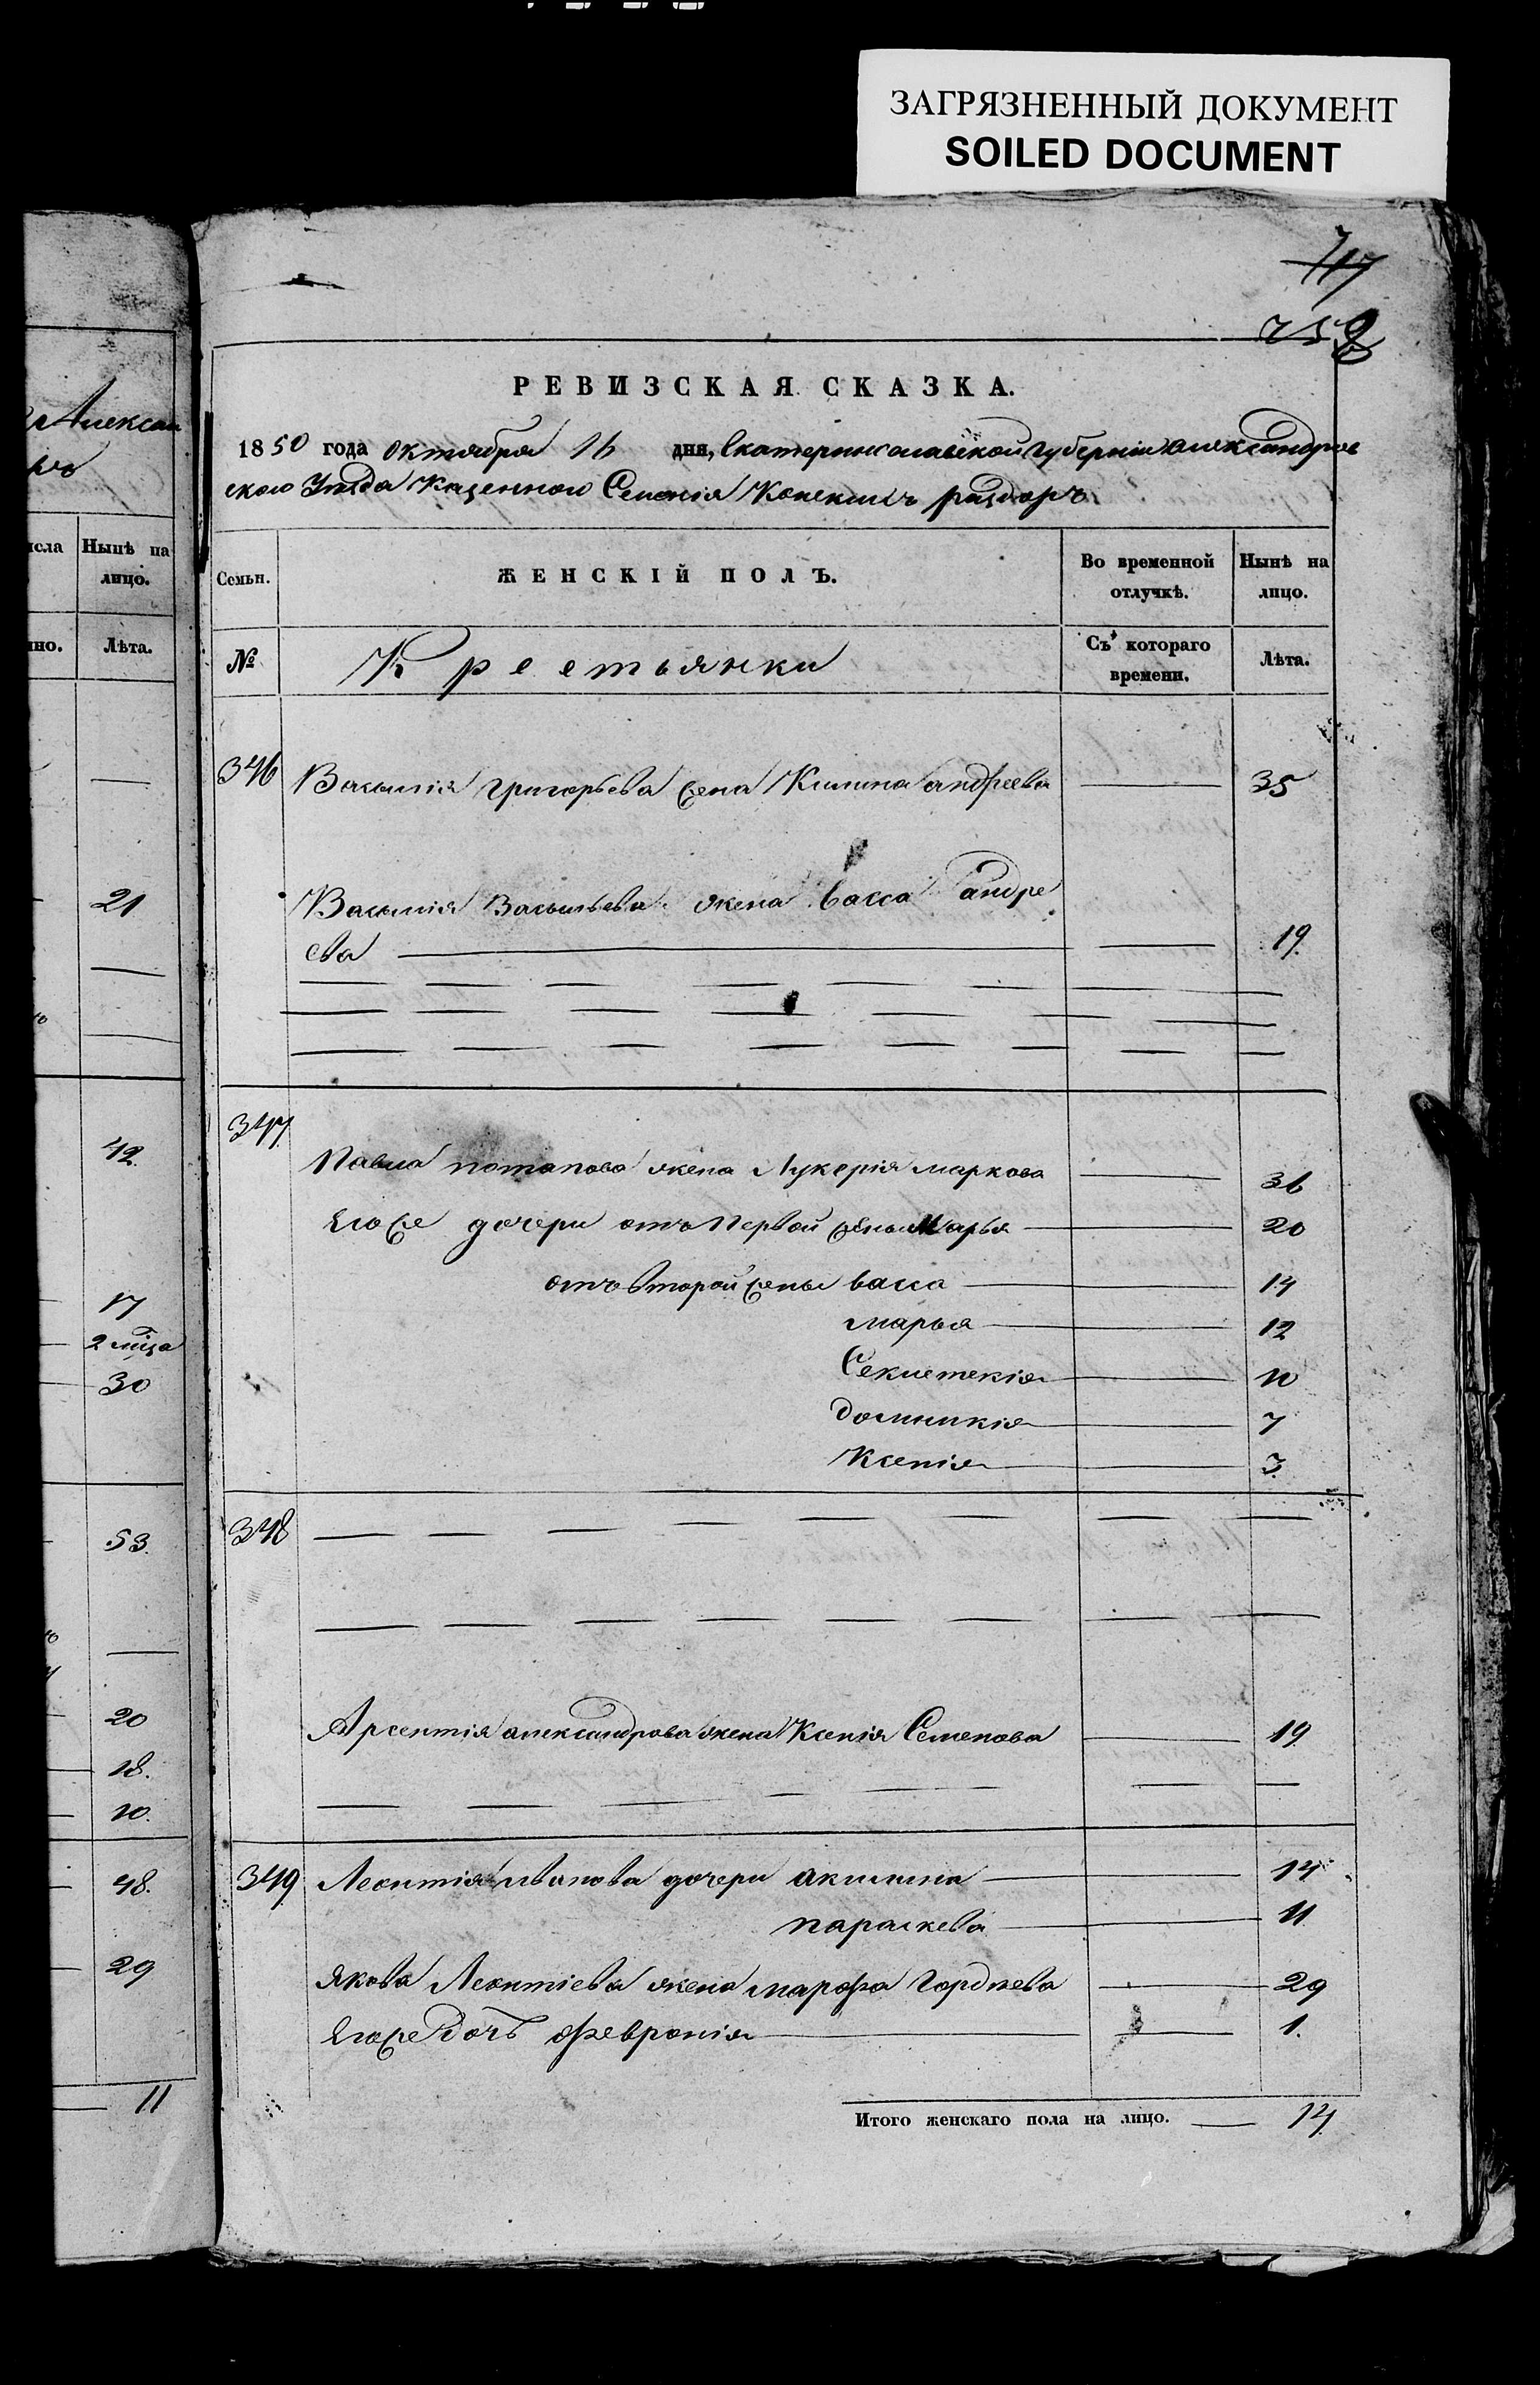 ЗАГРЯЗНЕННЫЙ ДОКУМЕНТ
SOILED DOCUMENT
717
758
РЕВИЗСКАЯ СКАЗКА.
1850 года октября 16 дня, Екатеринославской губернии Александров
ского Уезда Казенного Селения Конскихъ раздоръ
Семьи.
ЖЕНСКІЙ ПОЛЪ.
Во временной отлучкѣ.
Нынѣ на лицо.
№
Крестьянки
Съ котораго времени.
Лѣта.
346 Василия Григорьева жена Килина андреева 35
Василия Васильева жена васса андре
ева 19.
347
Павла потапова жена Лукерия маркова 36
Егоже дочери отъ Первой жены Марья 20
отъ второй жены васса 14
марья 12
Секлетекия 10
доминикия 7
Ксения 3
348
Арсентия александрова жена Ксения Семенова 19
349 Леонтия иванова дочери акилина 14
параскева 11
Якова Леонтиева жена марфа Гордеева 29
Егоже дочь февронія 1.
Итого женскаго пола на лицо. 14
Алексан
Нынѣ на
лицо.
Лѣта.
21
42.
17
2 мца
30
53.
20
18.
10.
48.
29
11